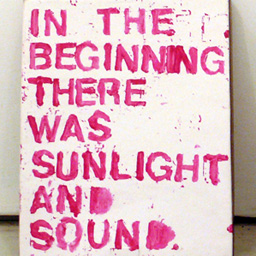 IN THE
BEGINNING
THERE
WAS
SUNLIGHT
AND
SOUND.